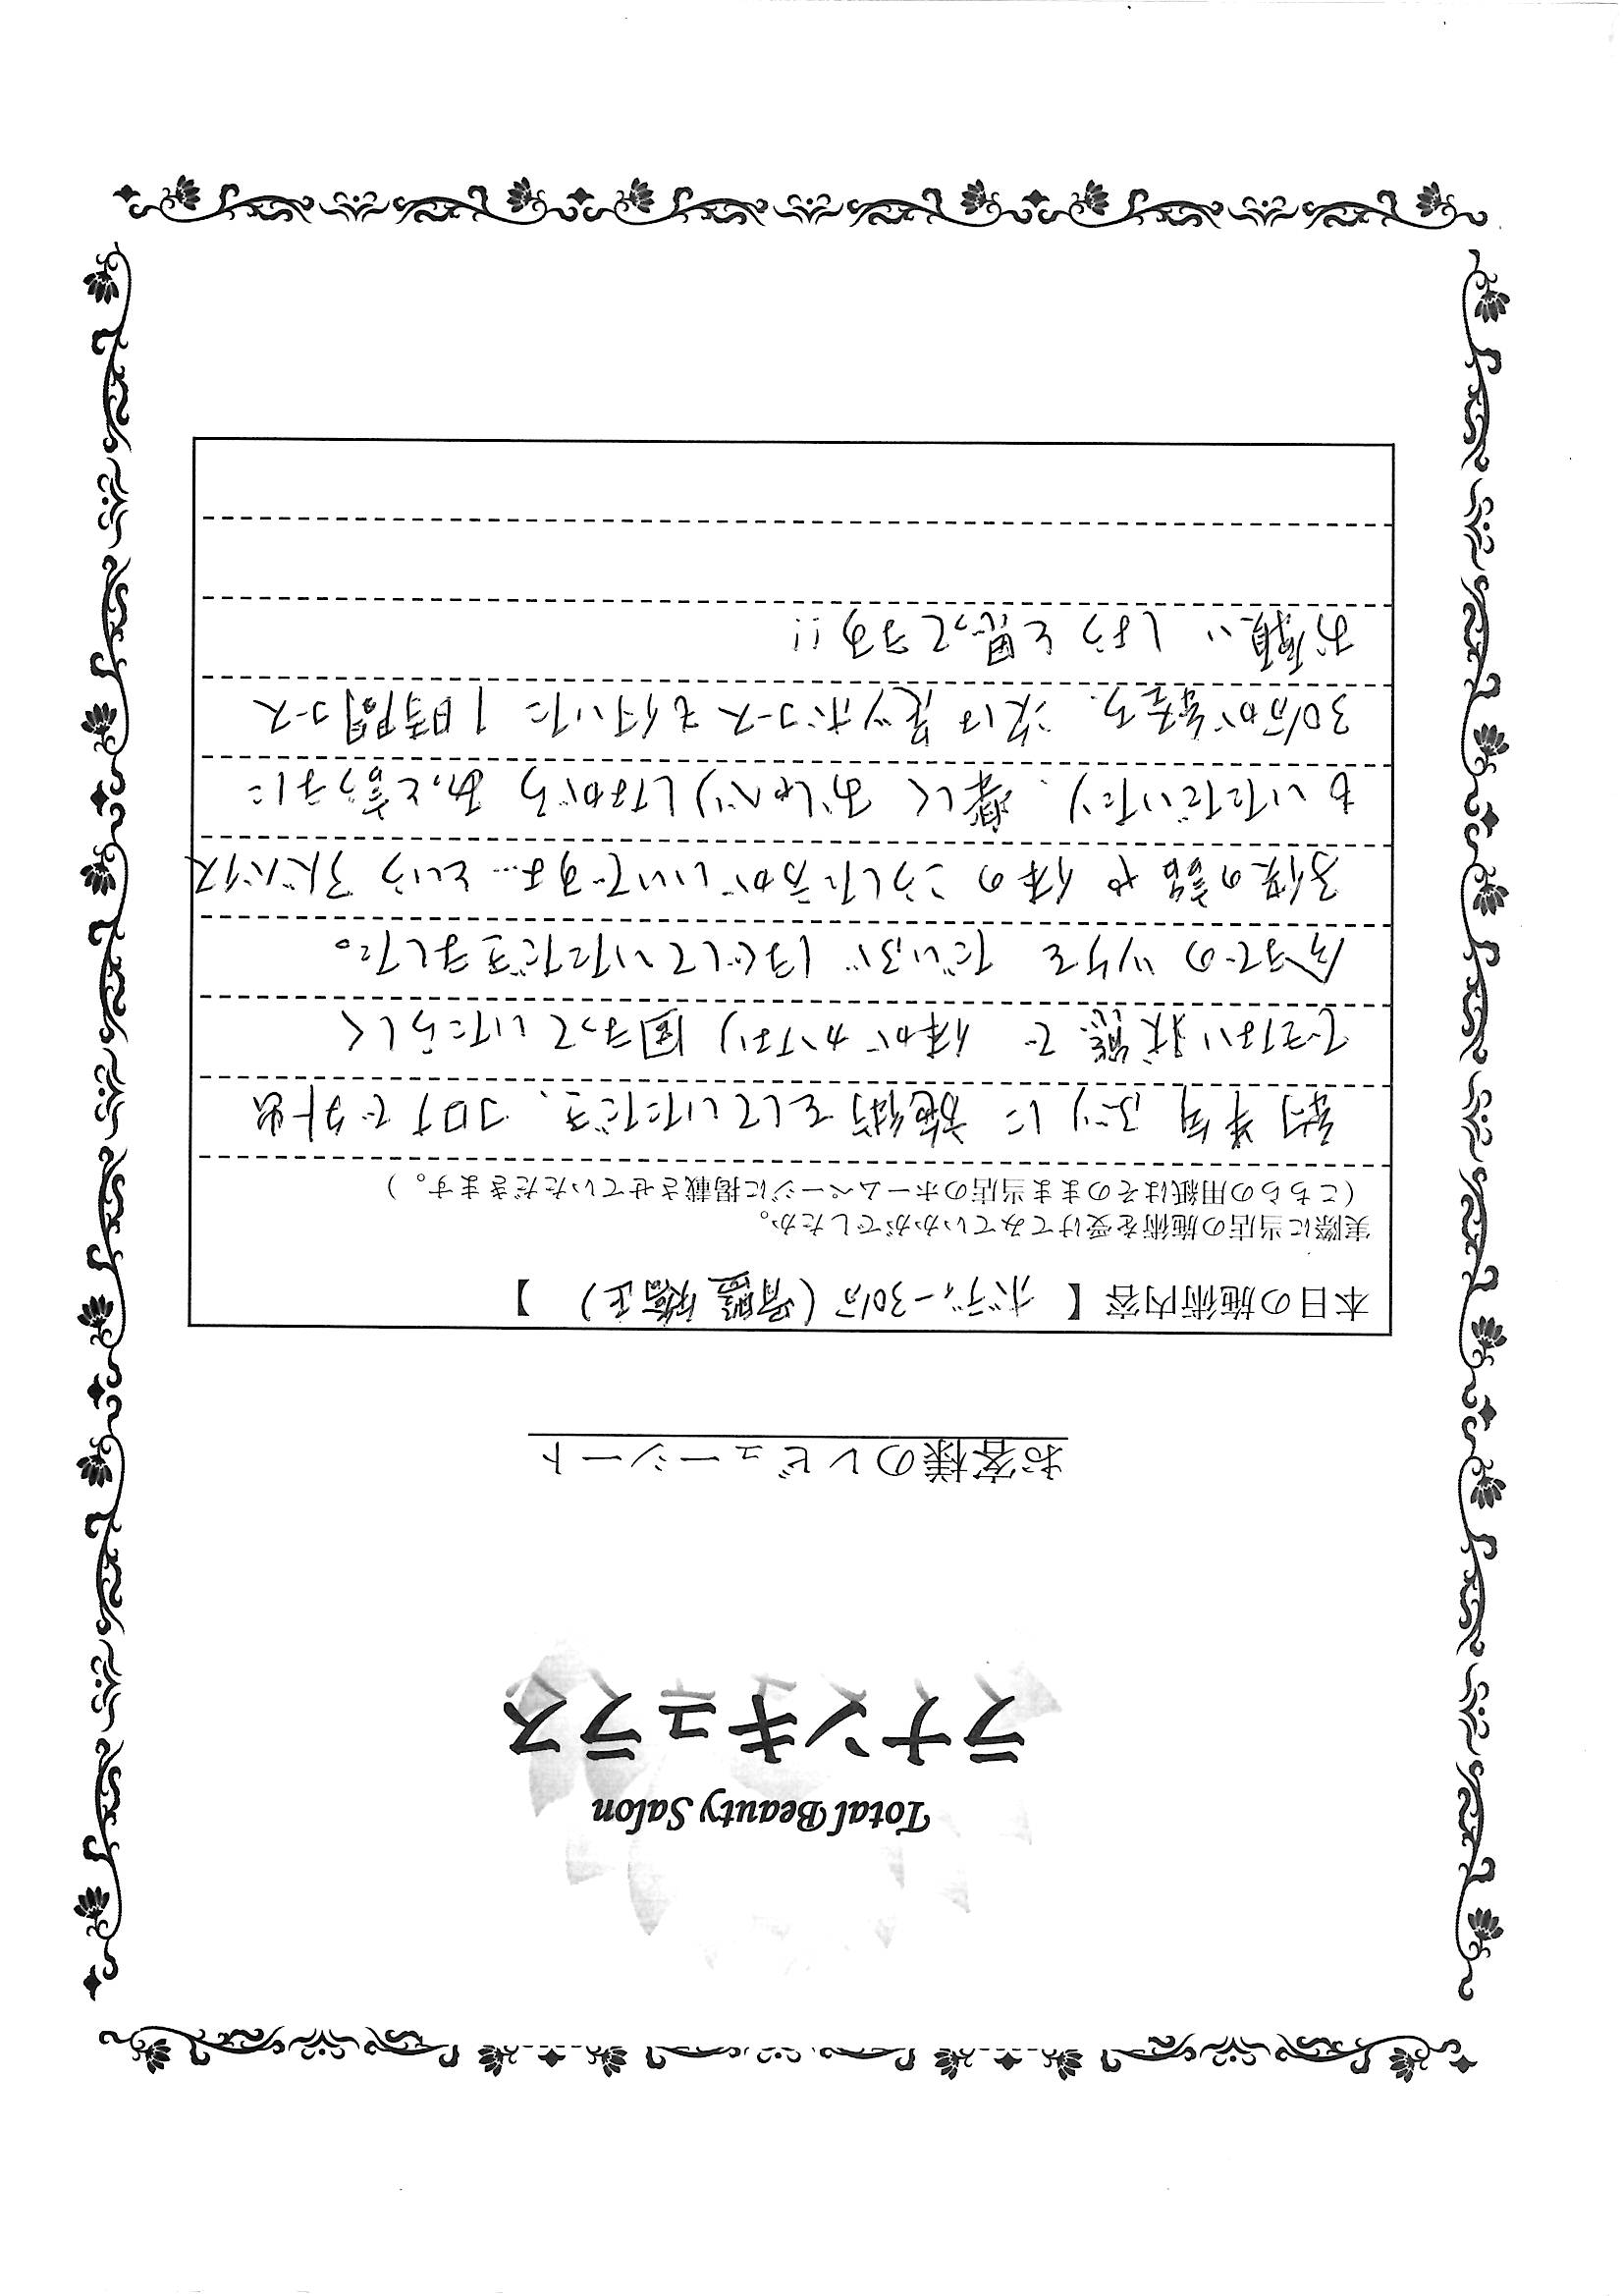 Total Beauty Salon
ラナンキュラス
お客様のレビューシート
本日の施術内容【 ボディー30分(骨盤矯正) 】
実際に当店の施術を受けてみていかがでしたか。
(こちらの用紙はそのまま当店のホームページに掲載させていただきます。)
約半年ぶりに施術をしていただき、コロナで外出
できない状態で 体がかなり固まっていたらしく
今までのツケを だいぶ ほぐしていただきました。
子供の話や 体の こうした方がいいですよ…という アドバイス
もいただいたり、楽しく おしゃべりしながら あっと言う間に
30分が終わり、次は 足ツボコースも付いた 1時間コース
お願いしようと思ってます!!